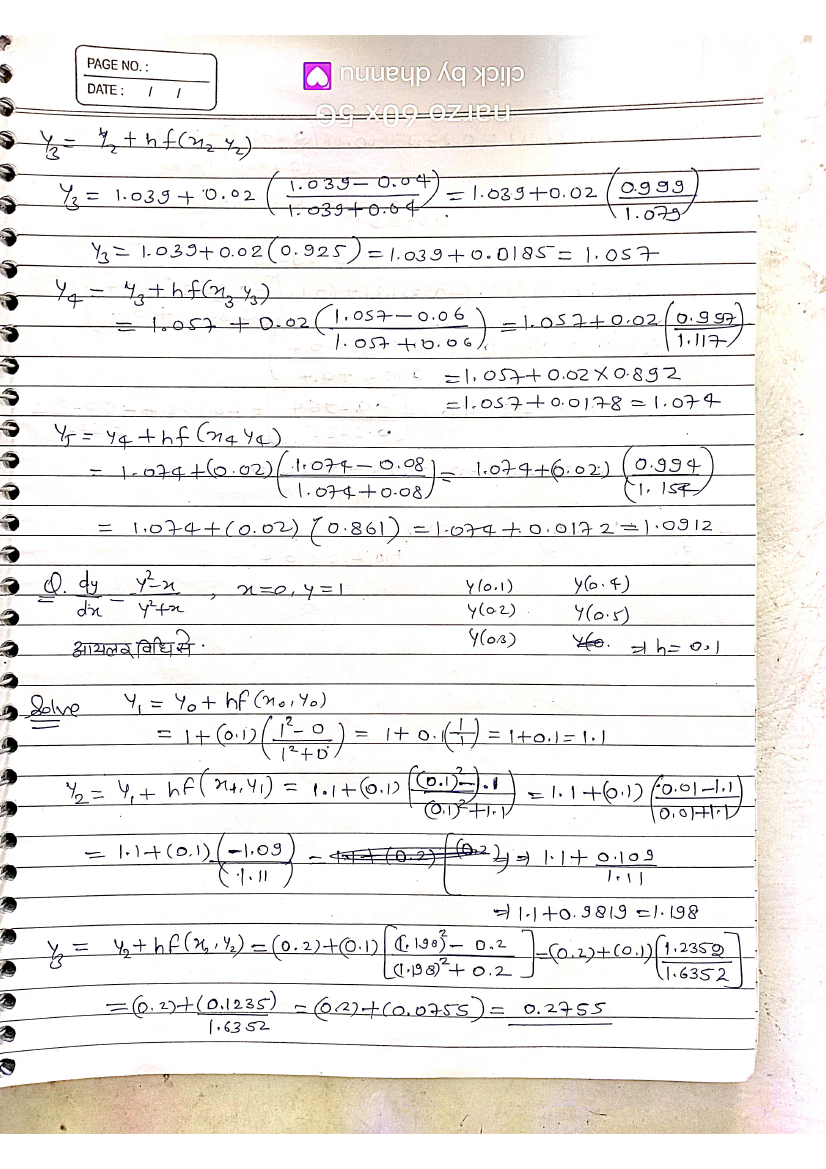 PAGE NO. :
DATE : / /
click by dhannu
narzo 60x 5G
y₃ = y₂ + hf(x₂ y₂)
y₃ = 1.039 + 0.02 ((1.039 - 0.04)/(1.039 + 0.04)) = 1.039 + 0.02 (0.999/1.079)
y₃ = 1.039 + 0.02 (0.925) = 1.039 + 0.0185 = 1.057
y₄ = y₃ + hf(x₃ y₃)
= 1.057 + 0.02 ((1.057 - 0.06)/(1.057 + 0.06)) = 1.057 + 0.02 (0.997/1.117)
= 1.057 + 0.02 × 0.892
= 1.057 + 0.0178 = 1.074
y₅ = y₄ + hf (x₄ y₄)
= 1.074 + (0.02) ((1.074 - 0.08)/(1.074 + 0.08)) = 1.074 + (0.02) (0.994/1.154)
= 1.074 + (0.02) (0.861) = 1.074 + 0.0172 = 1.0912
Q. dy/dx = (y² - x)/(y² + x) , x = 0, y = 1 y(0.1) y(0.4)
y(0.2) y(0.5)
आयलर विधि से. y(0.3) ⇒ h = 0.1
Solve y₁ = y₀ + hf (x₀, y₀)
= 1 + (0.1) ((1² - 0)/(1² + 0)) = 1 + 0.1 (1/1) = 1 + 0.1 = 1.1
y₂ = y₁ + hf (x₁, y₁) = 1.1 + (0.1) (((0.1)² - 1.1)/((0.1)² + 1.1)) = 1.1 + (0.1) ((0.01 - 1.1)/(0.01 + 1.1))
= 1.1 + (0.1) (-1.09/1.11) ⇒ 1.1 + 0.109/1.11
⇒ 1.1 + 0.9819 = 1.198
y₃ = y₂ + hf (x₂, y₂) = (0.2) + (0.1) [((1.198)² - 0.2)/((1.198)² + 0.2)] = (0.2) + (0.1) [1.2352/1.6352]
= (0.2) + (0.1235)/1.6352 = (0.2) + (0.0755) = 0.2755